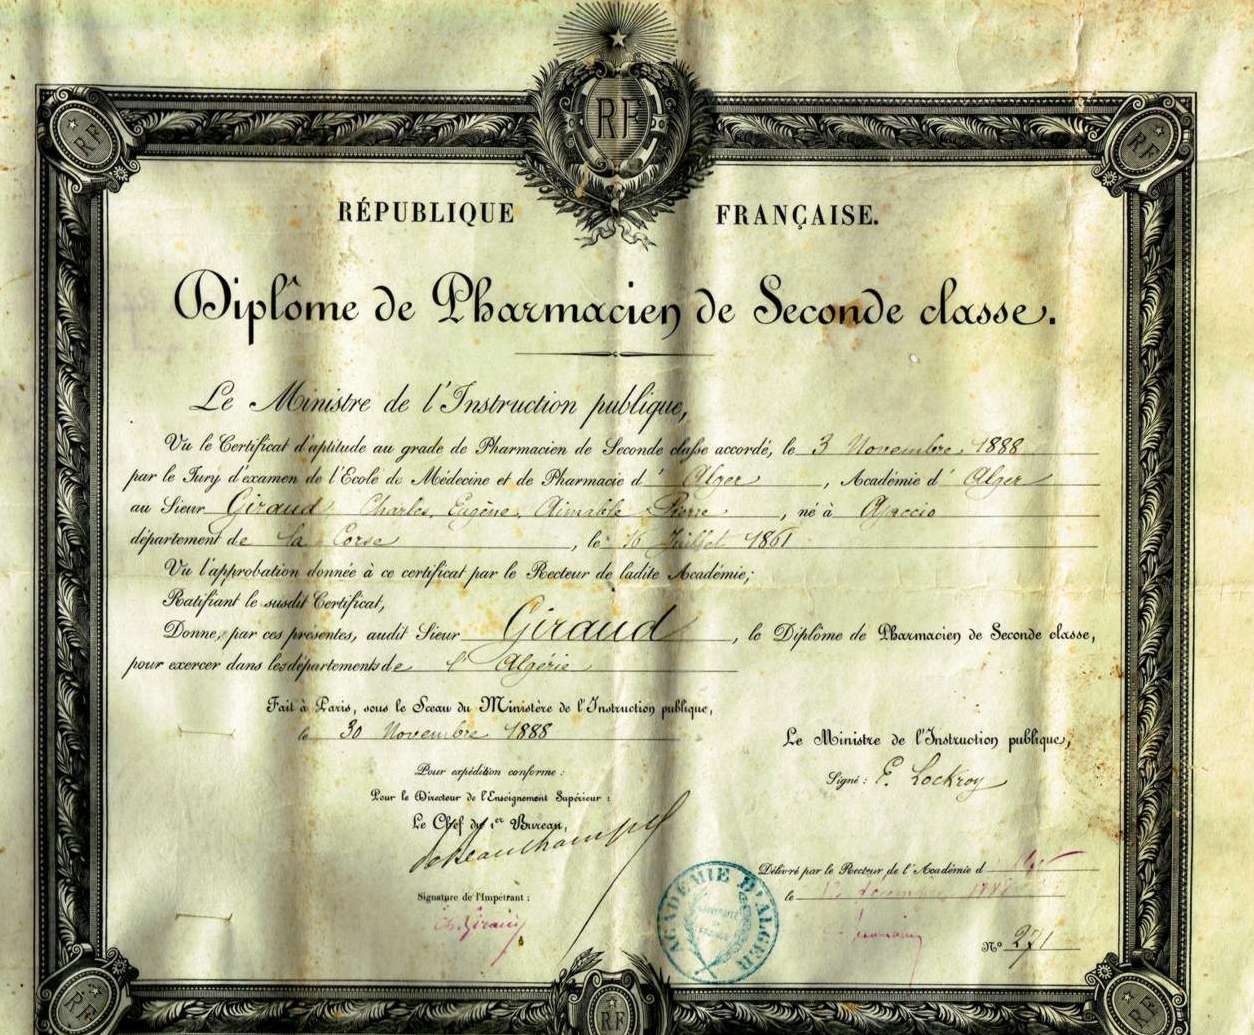 RF
RF
RF
RÉPUBLIQUE FRANÇAISE.
Diplôme de Pharmacien de Seconde classe.
Le Ministre de l'Instruction publique,
Vu le Certificat d'aptitude au grade de Pharmacien de Seconde classe accordé, le 3 Novembre 1888
par le Jury d'examen de l'Ecole de Médecine et de Pharmacie d'Alger, Académie d'Alger
au Sieur Giraud Charles, Eugène, Aimable Pierre, né à Ajaccio
département de la Corse, le 16 Juillet 1861
Vu l'approbation donnée à ce certificat par le Recteur de ladite Académie;
Ratifiant le susdit Certificat,
Donne, par ces présentes, audit Sieur Giraud, le Diplôme de Pharmacien de Seconde classe,
pour exercer dans les départements de l'Algérie
Fait à Paris, sous le Sceau du Ministère de l'Instruction publique,
le 30 Novembre 1888
Le Ministre de l'Instruction publique,
Signé: E. Lockroy
Pour expédition conforme:
Pour le Directeur de l'Enseignement Supérieur:
Le Chef du 1er Bureau,
de Beauchamp
Délivré par le Recteur de l'Académie d
le
Signature de l'Impétrant:
Ch. Giraud
ACADÉMIE D'ALGER
N° 271
RF
RF
RF